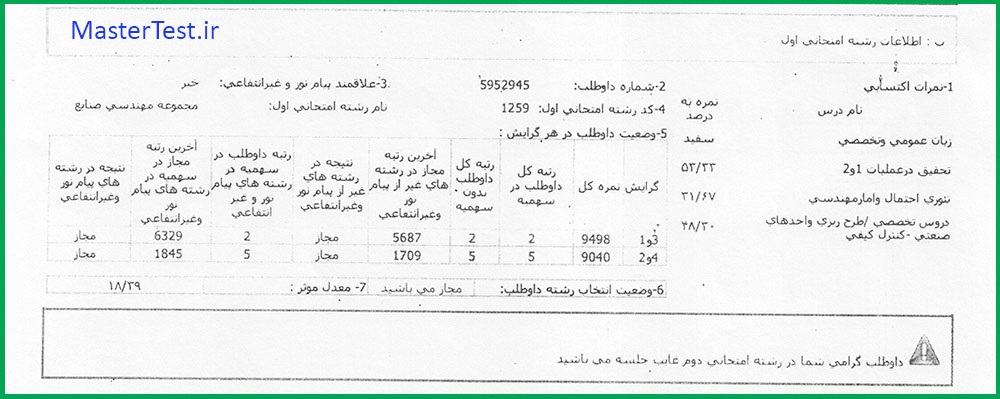 MasterTest.ir
ب : اطلاعات رشته امتحاني اول
1-نمرات اکتسابي
نام درس
نمره به درصد
زبان عمومي وتخصصي سفيد
تحقيق درعمليات 1و2 ۵۳/۳۳
تئوري احتمال وامارمهندسي ۳۱/۶۷
دروس تخصصي /طرح ريزي واحدهاي صنعتي -کنترل کيفي ۴۸/۳۰
2-شماره داوطلب: 5952945
3-علاقمند پيام نور و غيرانتفاعي: خير
4-کد رشته امتحاني اول: 1259
نام رشته امتحاني اول: مجموعه مهندسي صنايع
5-وضعيت داوطلب در هر گرايش :
گرايش
نمره کل
رتبه کل داوطلب در سهميه
رتبه کل داوطلب بدون سهميه
آخرين رتبه مجاز در رشته هاي غير از پيام نور وغيرانتفاعي
نتيجه در رشته هاي غير از پيام نور وغيرانتفاعي
رتبه داوطلب در سهميه در رشته هاي پيام نور و غير انتفاعي
آخرين رتبه مجاز در سهميه در رشته هاي پيام نور وغيرانتفاعي
نتيجه در رشته هاي پيام نور وغيرانتفاعي
3و1 9498 2 2 5687 مجاز 2 6329 مجاز
4و2 9040 5 5 1709 مجاز 5 1845 مجاز
6-وضعيت انتخاب رشته داوطلب: مجاز مي باشيد
7- معدل موثر : ۱۸/۳۹
داوطلب گرامي شما در رشته امتحاني دوم غايب جلسه مي باشيد